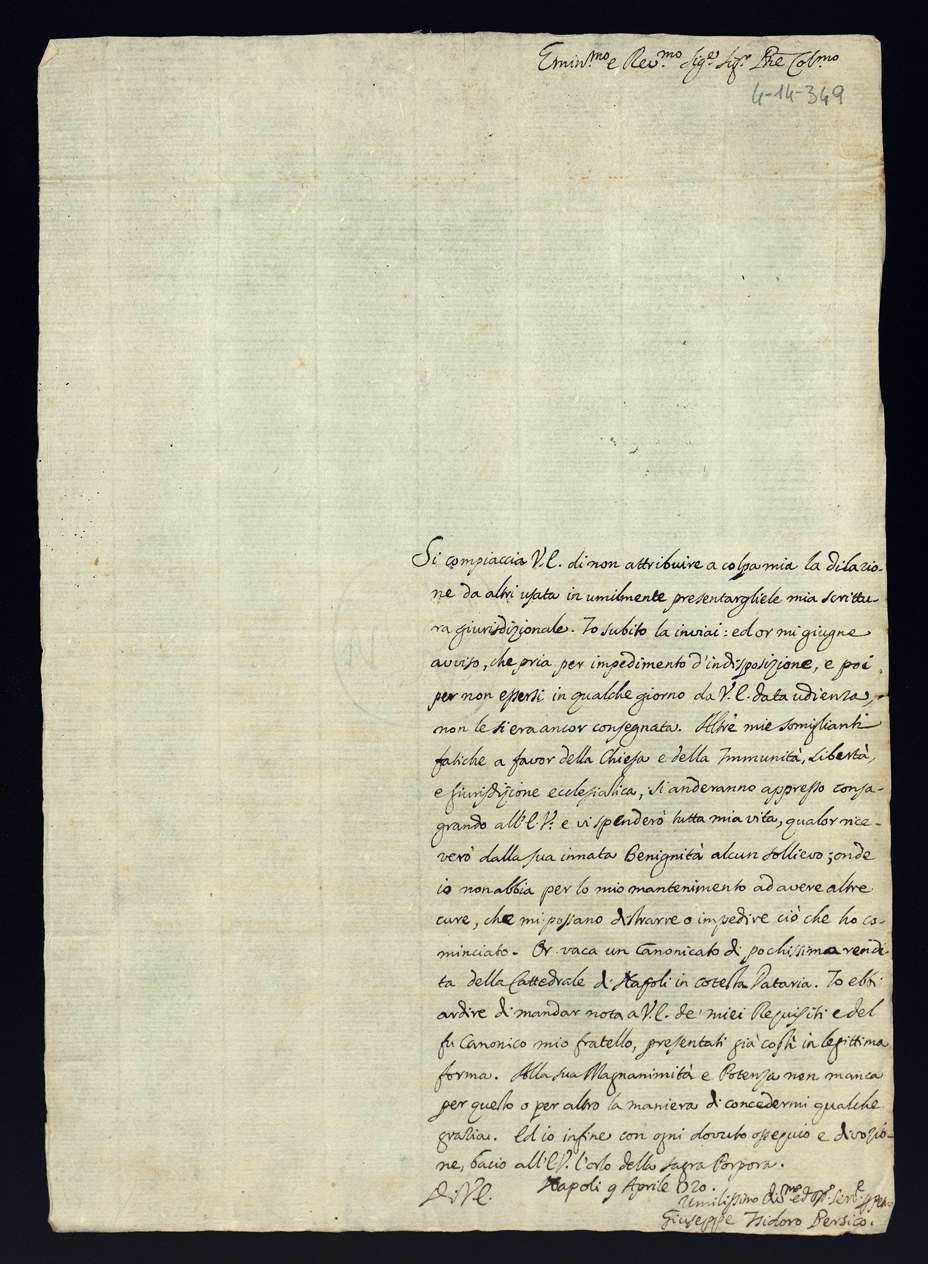 Emin.mo e Rev.mo Sig.r Sig.r Pne Col.mo
4-14-349
Si compiaccia V.E. di non attribuire a colpa mia la dilazio-
ne da altri usata in umilmente presentargliele mia scrittu-
ra giurisdizionale. Io subito la inviai: ed or mi giugne
avviso, che pria per impedimento d'indisposizione, e poi
per non essersi in qualche giorno da V.E. data udienza,
non le si era ancor consegnata. Altre mie somiglianti
fatiche a favor della Chiesa e della Immunità, Libertà,
e Giurisdizione ecclesiastica, si anderanno appresso consa-
grando all'E.V. e vi spenderò tutta mia vita, qualor rice-
verò dalla sua innata Benignità alcun sollievo; onde
io non abbia per lo mio mantenimento ad avere altre
cure, che mi possano distrarre o impedire ciò che ho co-
minciato. Or vaca un Canonicato di pochissima rendi-
ta della Cattedrale di Napoli in cotesta Dataria. Io ebbi
ardire di mandar nota a V.E. de' miei Requisiti e del
fu Canonico mio fratello, presentati già costì in legittima
forma. Alla sua Magnanimità e Potenza non manca
per questo o per altro la maniera di concedermi qualche
grazia. Ed io infine con ogni dovuto ossequio e divozio-
ne, bacio all'E.V. l'orlo della sagra Porpora.
Napoli 9 Aprile 1720.
Di V.E.
Umilissimo Di.mo ed
Giuseppe Isidoro Persico.